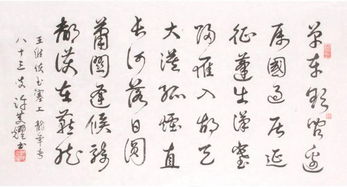 單車欲問邊
屬國過居延
征蓬出漢塞
歸雁入胡天
大漠孤煙直
長河落日圓
蕭關逢候騎
都護在燕然
王維使至塞上 龍年春
八十三叟 許耀書